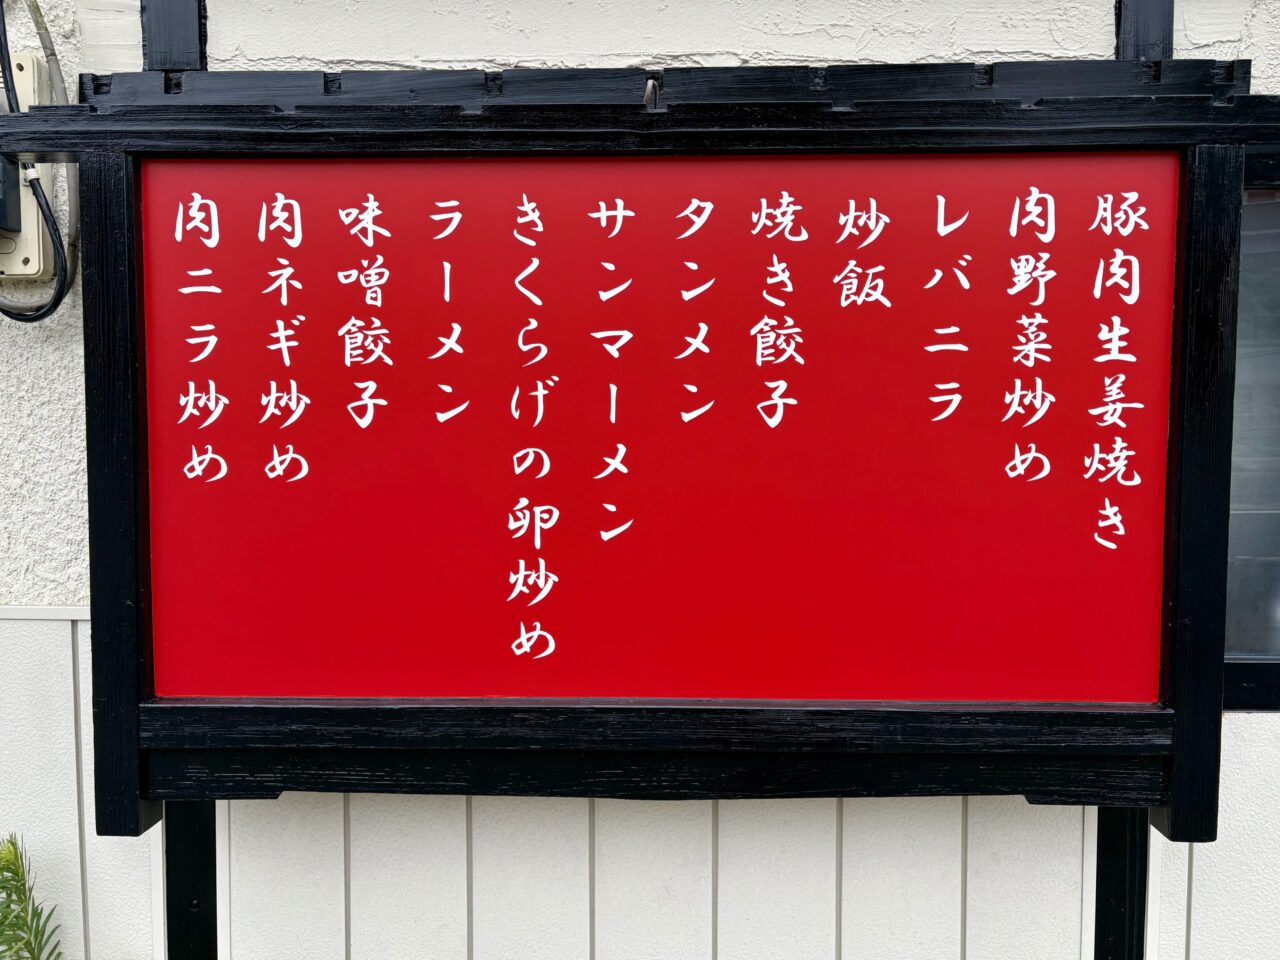 豚肉生姜焼き
肉野菜炒め
レバニラ
炒飯
焼き餃子
タンメン
サンマーメン
きくらげの卵炒め
ラーメン
味噌餃子
肉ネギ炒め
肉ニラ炒め